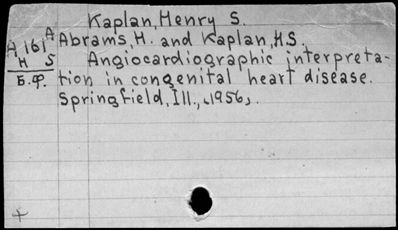 Kaplan, Henry S.
A 161 A
Abrams, H. and Kaplan, H.S.
H S
Angiocardiographic interpreta-
Б.Ф.
tion in congenital heart disease.
Springfield, Ill., <1956>.
+